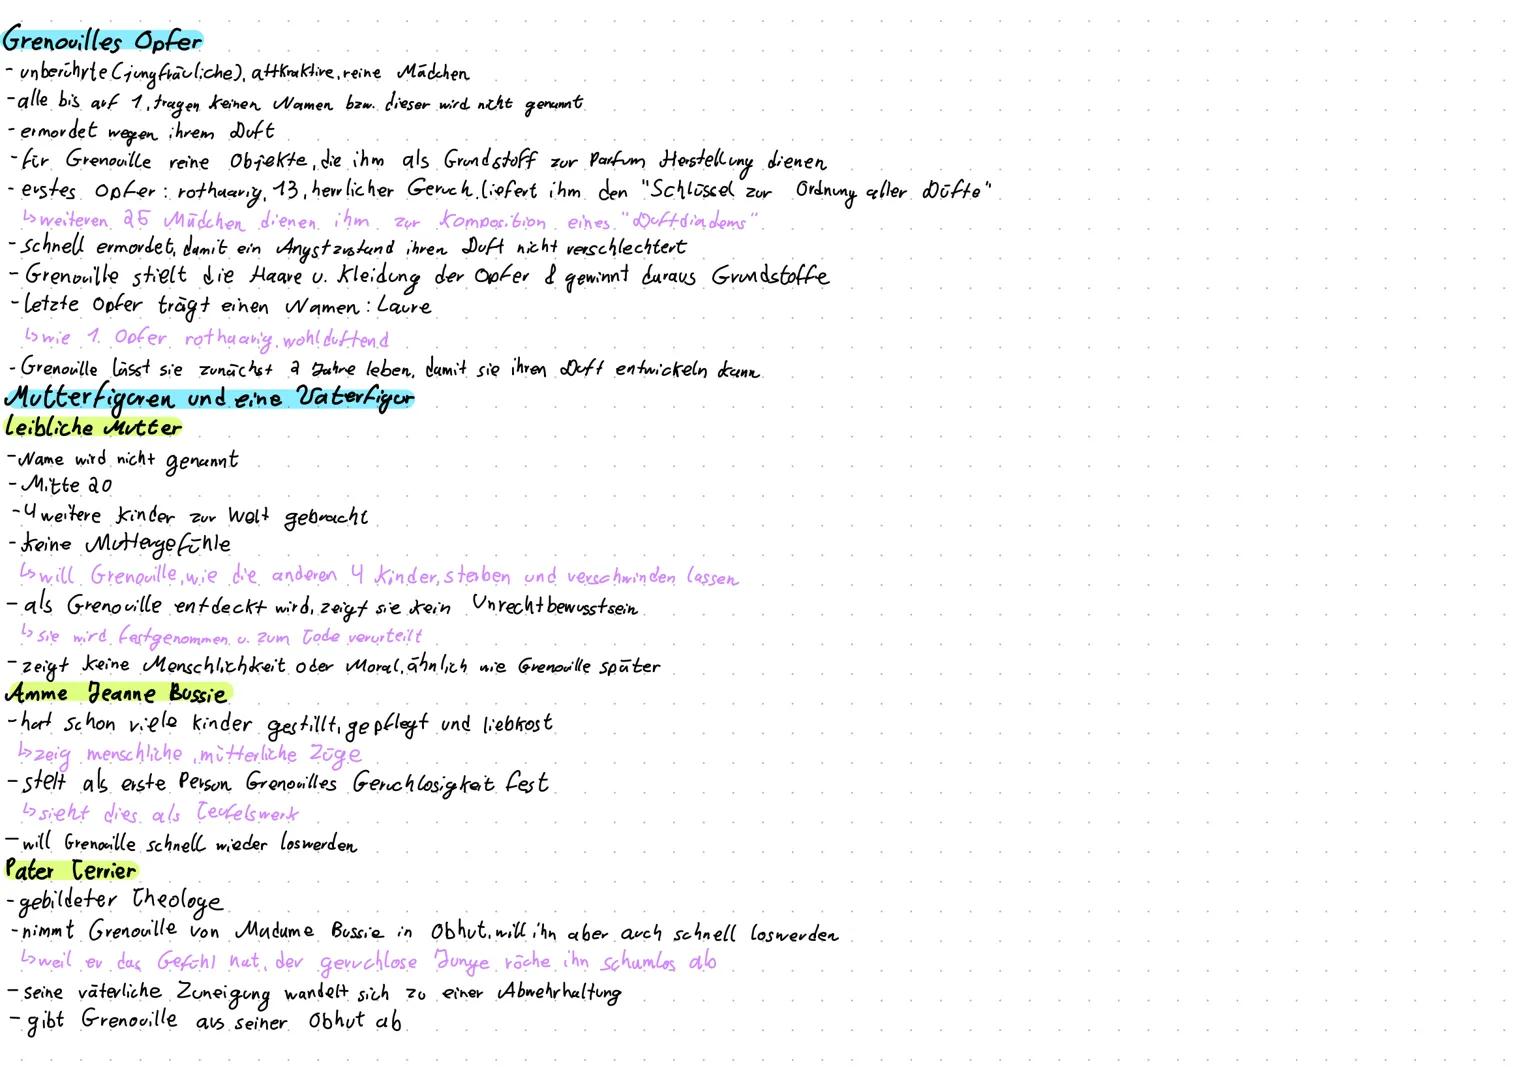 Grenouilles Opfer
- unberührte (jungfräuliche), attkraktive, reine Mädchen
- alle bis auf 1, tragen keinen Namen bzw. dieser wird nicht genannt
- ermordet wegen ihrem Duft
- für Grenouille reine Objekte, die ihm als Grundstoff zur Parfum Herstellung dienen
- erstes Opfer: rothaarig, 13, herrlicher Geruch, liefert ihm den "Schlüssel zur Ordnung aller Düfte"
↳ weiteren 25 Mädchen dienen ihm zur Komposition eines "Duftdiadems"
- schnell ermordet, damit ein Angstzustand ihren Duft nicht verschlechtert
- Grenouille stielt die Haare u. Kleidung der Opfer & gewinnt daraus Grundstoffe
- letzte Opfer trägt einen Namen: Laure
↳ wie 1. Opfer rothaarig, wohlduftend
- Grenouille lässt sie zunächst 2 Jahre leben, damit sie ihren Duft entwickeln kann
Mutterfiguren und eine Vaterfigur
Leibliche Mutter
- Name wird nicht genannt
- Mitte 20
- 4 weitere Kinder zur Welt gebracht
- keine Muttergefühle
↳ will Grenouille, wie die anderen 4 Kinder, sterben und verschwinden lassen
- als Grenouille entdeckt wird, zeigt sie kein Unrechtbewusstsein
↳ sie wird festgenommen u. zum Tode verurteilt
- zeigt keine Menschlichkeit oder Moral, ähnlich wie Grenouille später
Amme Jeanne Bussie
- hat schon viele Kinder gestillt, gepflegt und liebkost
↳ zeig menschliche, mütterliche Züge
- stelt als erste Person Grenouilles Geruchlosigkeit fest
↳ sieht dies als Teufelswerk
- will Grenouille schnell wieder loswerden
Pater Terrier
- gebildeter Theologe
- nimmt Grenouille von Madame Bussie in Obhut, will ihn aber auch schnell loswerden
↳ weil er das Gefühl hat, der geruchlose Junge röche ihn schamlos ab
- seine väterliche Zuneigung wandelt sich zu einer Abwehrhaltung
- gibt Grenouille aus seiner Obhut ab